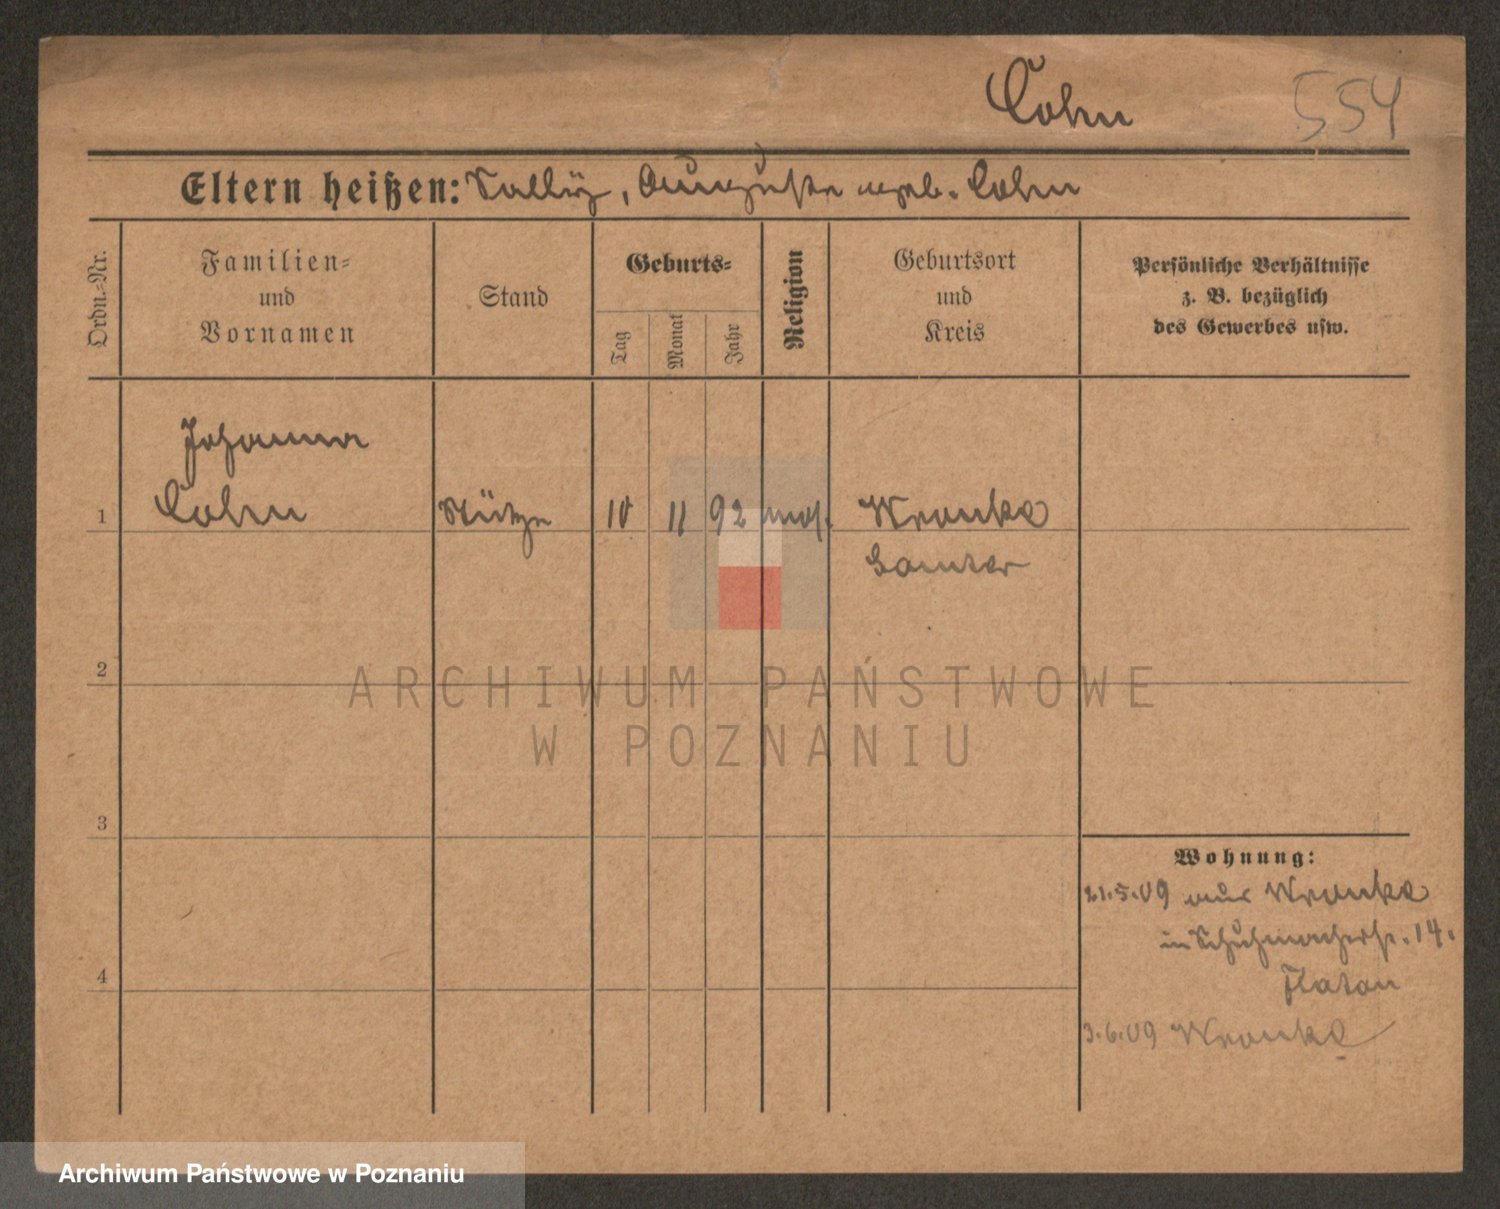 Cohn 554
Eltern heißen: Sally, Auguste geb. Cohn
Ordn.-Nr.
Familien-
und
Vornamen
Stand
Geburts-
Tag
Monat
Jahr
Religion
Geburtsort
und
Kreis
Persönliche Verhältnisse
z. B. bezüglich
des Gewerbes usw.
Johanna
1 Cohn Stütze 10 11 92 mos. Wronke
Samter
2
ARCHIWUM PAŃSTWOWE
W POZNANIU
3
Wohnung:
21.5.09 aus Wronke
in Schuhmacherstr. 14.
Flatau
4
3.6.09 Wronke
Archiwum Państwowe w Poznaniu